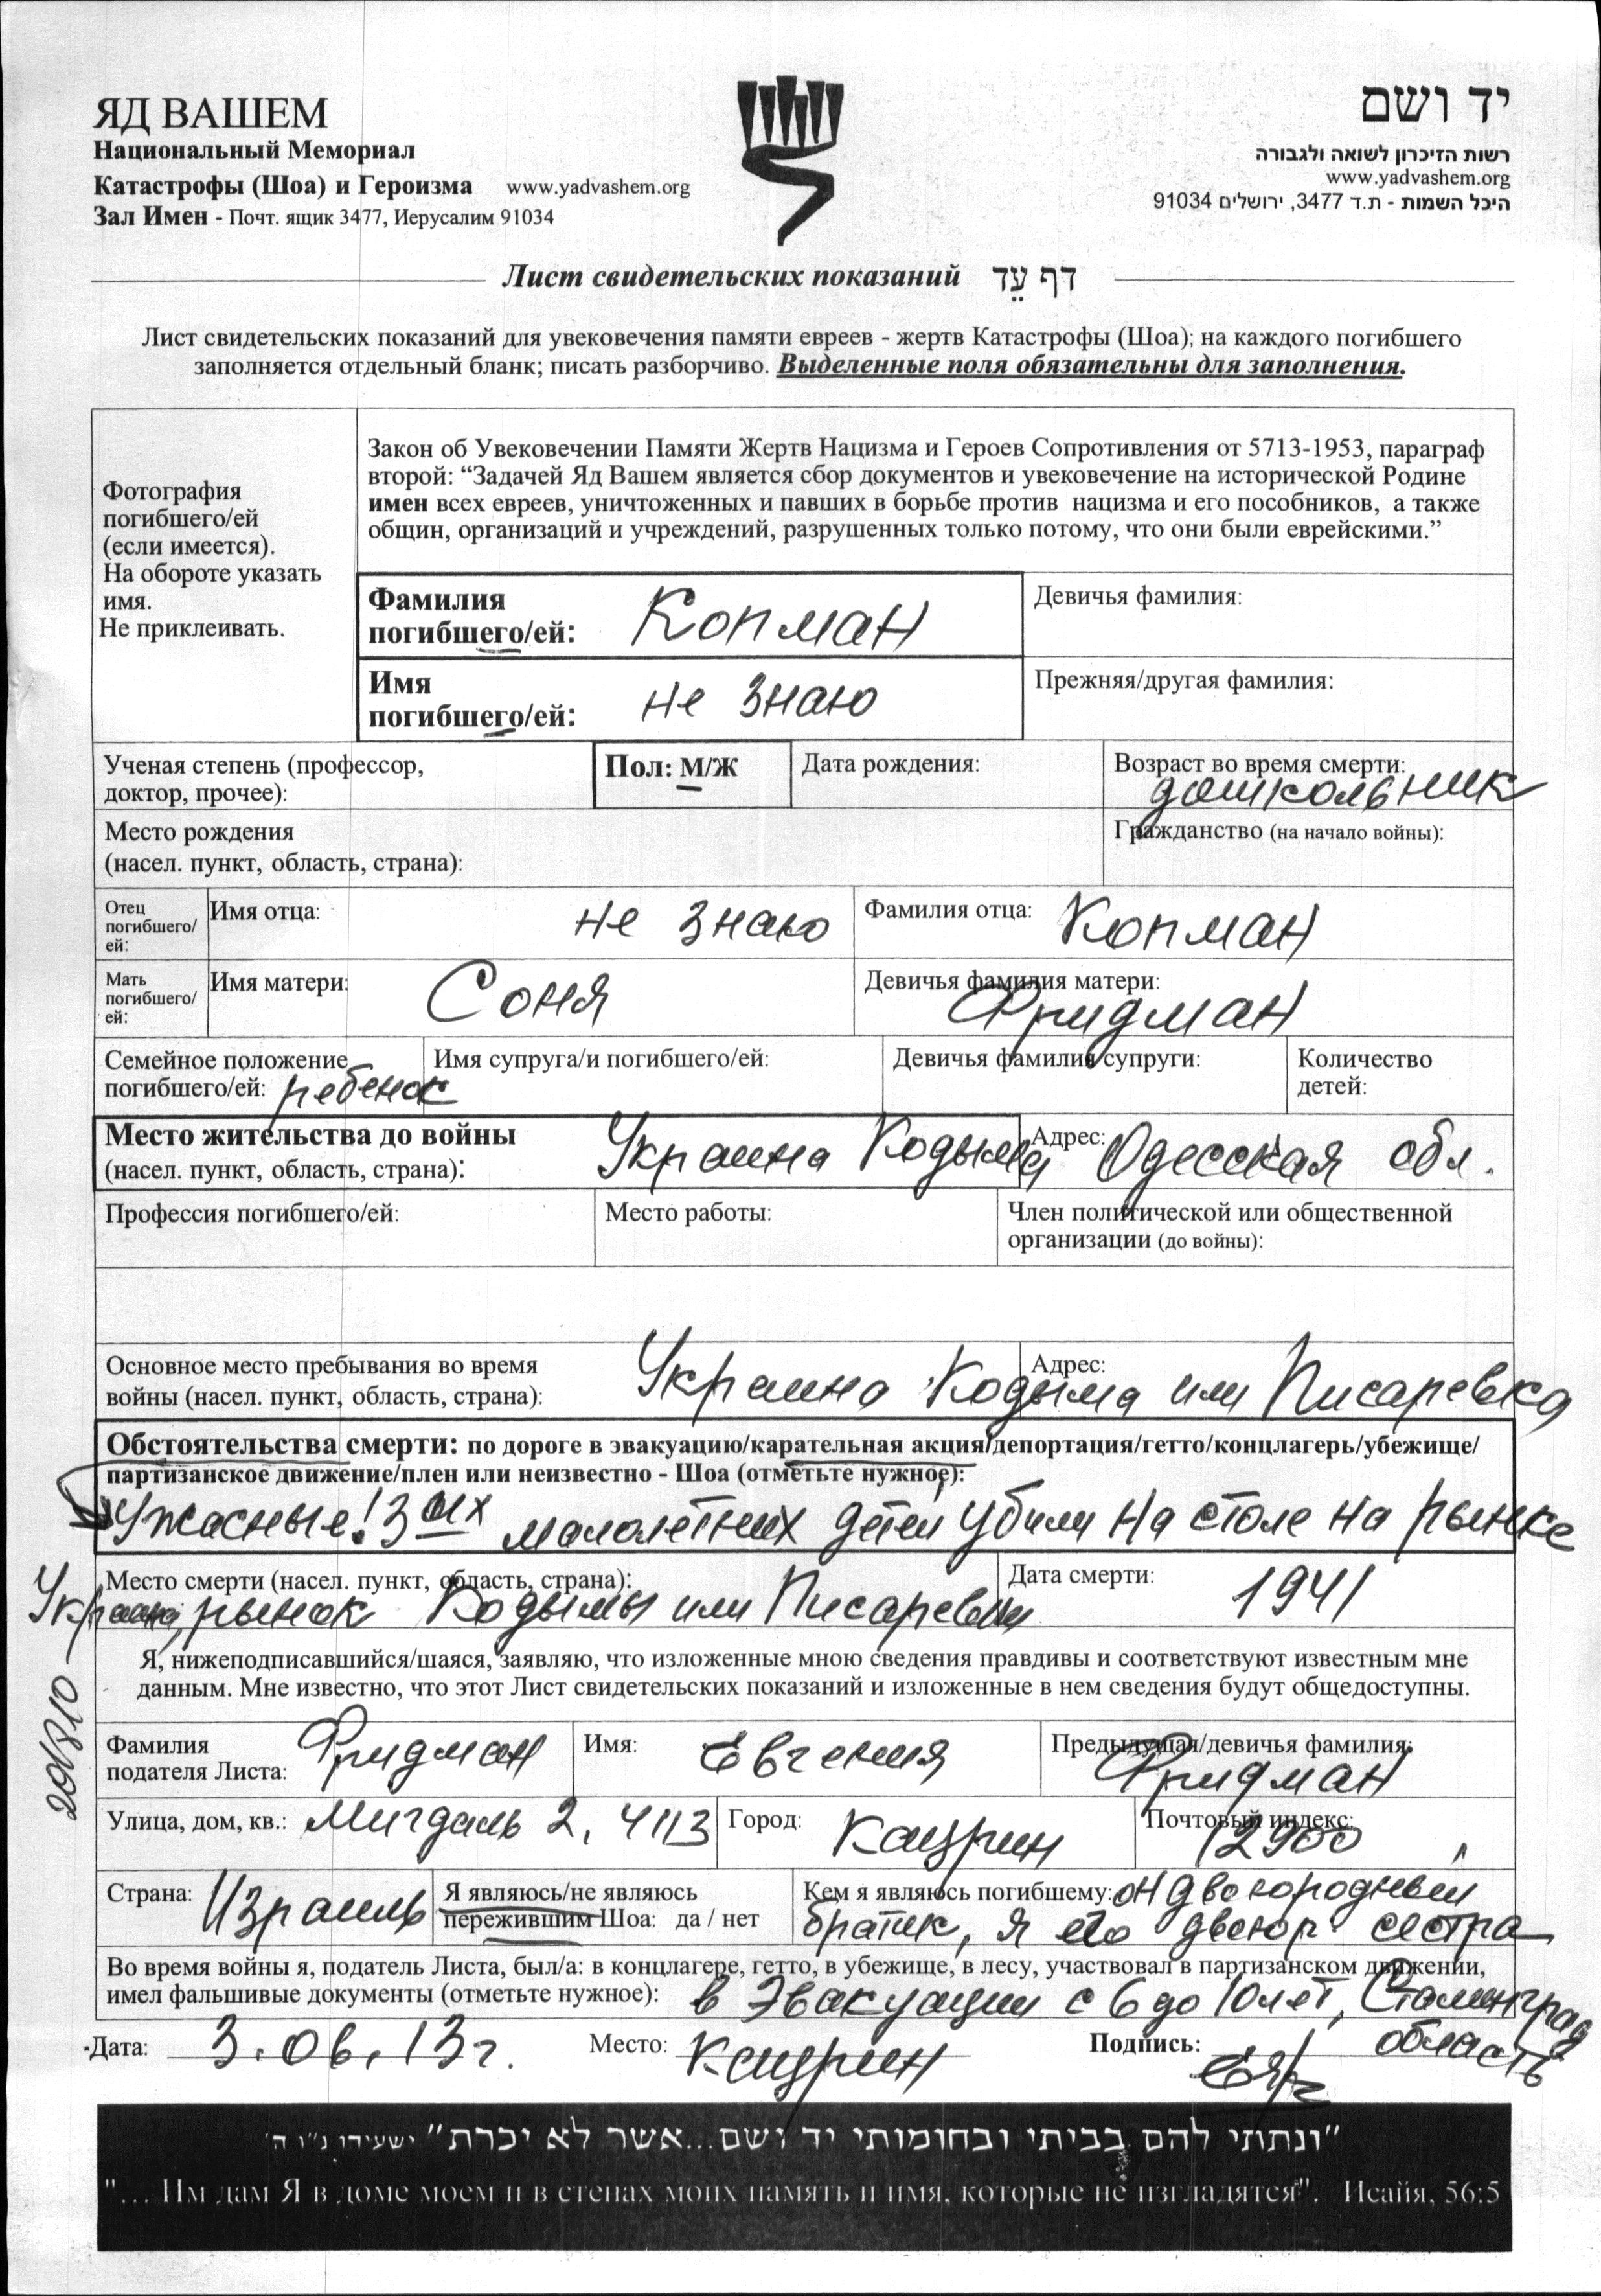 ЯД ВАШЕМ
Национальный Мемориал
Катастрофы (Шоа) и Героизма www.yadvashem.org
Зал Имен - Почт. ящик 3477, Иерусалим 91034
יד ושם
רשות הזיכרון לשואה ולגבורה
www.yadvashem.org
היכל השמות - ת.ד 3477, ירושלים 91034
Лист свидетельских показаний דף עֵד
Лист свидетельских показаний для увековечения памяти евреев - жертв Катастрофы (Шоа); на каждого погибшего
заполняется отдельный бланк; писать разборчиво. Выделенные поля обязательны для заполнения.
Фотография
погибшего/ей
(если имеется).
На обороте указать
имя.
Не приклеивать.
Закон об Увековечении Памяти Жертв Нацизма и Героев Сопротивления от 5713-1953, параграф
второй: “Задачей Яд Вашем является сбор документов и увековечение на исторической Родине
имен всех евреев, уничтоженных и павших в борьбе против нацизма и его пособников, а также
общин, организаций и учреждений, разрушенных только потому, что они были еврейскими.”
Фамилия
погибшего/ей: Копман
Девичья фамилия:
Имя
погибшего/ей: не знаю
Прежняя/другая фамилия:
Ученая степень (профессор,
доктор, прочее):
Пол: М/Ж
Дата рождения:
Возраст во время смерти:
дошкольник
Место рождения
(насел. пункт, область, страна):
Гражданство (на начало войны):
Отец
погибшего/
ей:
Имя отца: не знаю
Фамилия отца: Копман
Мать
погибшего/
ей:
Имя матери: Соня
Девичья фамилия матери:
Фридман
Семейное положение
погибшего/ей: ребенок
Имя супруга/и погибшего/ей:
Девичья фамилия супруги:
Количество
детей:
Место жительства до войны
(насел. пункт, область, страна): Украина Кодыма
Адрес: Одесская обл.
Профессия погибшего/ей:
Место работы:
Член политической или общественной
организации (до войны):
Основное место пребывания во время
войны (насел. пункт, область, страна): Украина Кодыма или Писаревка
Адрес:
Обстоятельства смерти: по дороге в эвакуацию/карательная акция/депортация/гетто/концлагерь/убежище/
партизанское движение/плен или неизвестно - Шоа (отметьте нужное):
Ужасные! 3ых малолетних детей убили на столе на рынке
Место смерти (насел. пункт, область, страна):
Украина, рынок Кодымы или Писаревки
Дата смерти: 1941
Я, нижеподписавшийся/шаяся, заявляю, что изложенные мною сведения правдивы и соответствуют известным мне
данным. Мне известно, что этот Лист свидетельских показаний и изложенные в нем сведения будут общедоступны.
Фамилия
подателя Листа: Фридман
Имя: Евгения
Предыдущая/девичья фамилия:
Фридман
Улица, дом, кв.: Мигдаль 2, 41/3
Город: Кацрин
Почтовый индекс:
12900
Страна: Израиль
Я являюсь/не являюсь
пережившим Шоа: да / нет
Кем я являюсь погибшему: он двоюродный
братик, я его двоюр сестра
Во время войны я, податель Листа, был/а: в концлагере, гетто, в убежище, в лесу, участвовал в партизанском движении,
имел фальшивые документы (отметьте нужное): в Эвакуации с 6 до 10 лет, Сталинград
область
Дата: 3.06.13г.
Место: Кацрин
Подпись:
"ונתתי להם בביתי ובחומותי יד ושם...אשר לא יכרת" ישעיהו נ"ו ה'
"... Им дам Я в доме моем и в стенах моих память и имя, которые не изгладятся". Исайя, 56:5